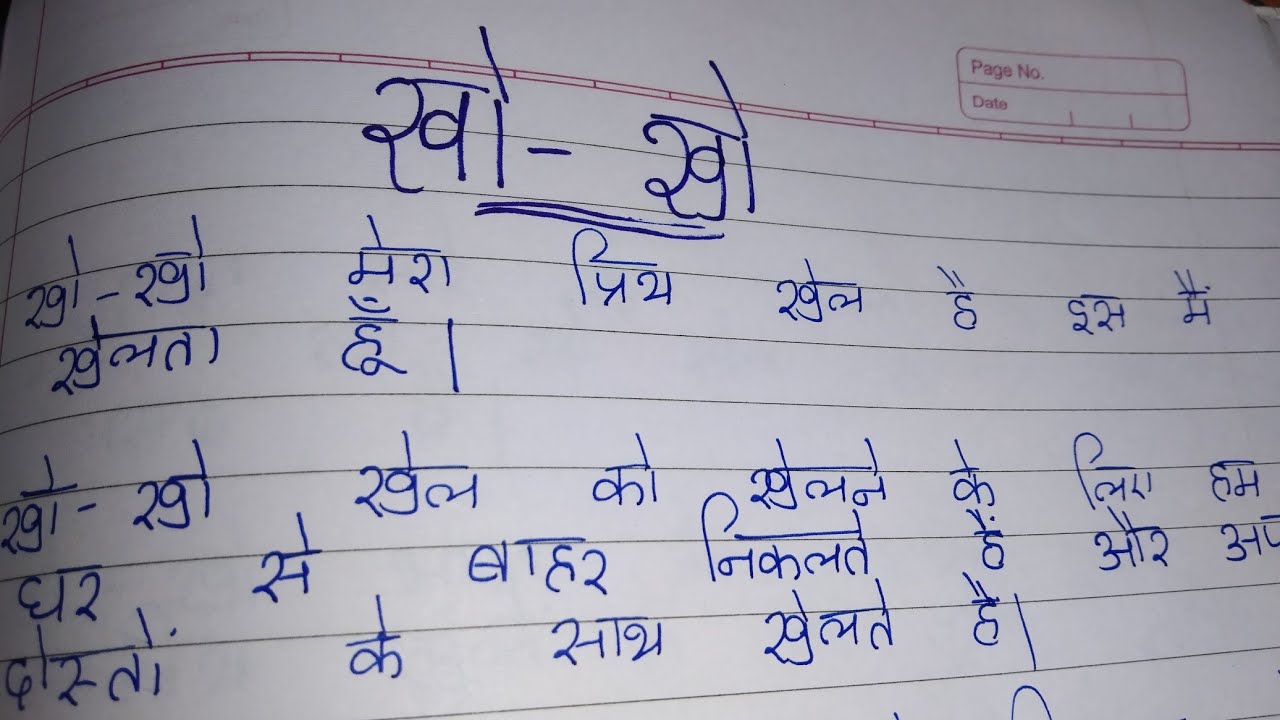 Page No.
Date
खो - खो
खो-खो मेरा प्रिय खेल है इस मैं
खेलता हूँ।
खो-खो खेल को खेलने के लिए हम
घर से बाहर निकलते हैं और
दोस्तों के साथ खेलते है।